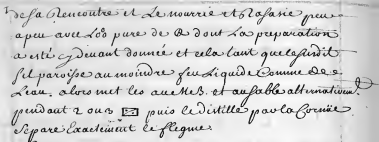 de sa Rencontre et le nourrir et Rasasie peu
a peu avec Los pure de dont la preparation
a esté cy devant donnée et cela tant que le susdit
sel paroisse au moindre feu liquide comme de
Leau. alors met les au MB. et au sable alternativem.
pendant 2 ou 3 puis le distille par la Cornüe
Separe Exactement le flegme.